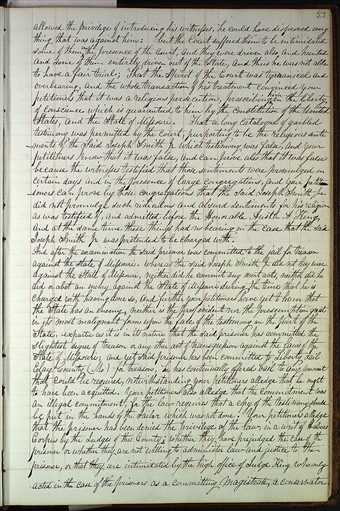 22
allowed the privilege of introducing his witnesses, he could have disproved every
thing that was against him; but the Court suffered them to be intimidated
some of them in the presence of the Court, and they were driven also and hunted
and some of them entirely driven out of the State, and thus he was not able
to have a fair trial; That the Spirit of the Court was tyrannical and
overbearing, and the whole transaction of his treatment convinced your
petitioners that it was a religious persecution, proscribing him in the liberty
of conscience which is guaranteed to him by the Constitution of the United
States, and the State of Missouri. That a long catalogue of garbled
testimony was permitted by the court, purporting to be the religious senti-
ments of the Said Joseph Smith Jr. which testimony was false, and your
petitioners know that it was false, and can prove also that it was false
because the witnesses testified that those sentiments were promulged on
certain days and in the presence of large congregations, and your
can prove by those congregations that the Said Joseph Smith Jr.
did not promulge such ridiculous and absurd sentiments for his religion
as was testified of, and admitted before the Honorable Austin A. King,
and at the same time these things had no bearing on the case that the said
Joseph Smith Jr. was pretended to be charged with.
And after the examination the said prisoner was committed to the jail for treason
against the State of Missouri. whereas the said Joseph Smith Jr. did not levy war
against the State of Missouri, neither did he commit any overt acts, neither did he
aid or abet an enemy against the State of Missouri during the time that he is
charged with having done so, and further your petitioners have yet to learn that
the State has an enemy, neither is the proof evident nor the presumption great
in its most malignant form upon the face of the testimony on the part of the
State, exparte as it is in its nature that the said prisoner has committed the
slightest degree of treason or any other act of transgression against the laws of the
State of Missouri, and yet said prisoner has been committed to Liberty jail
Clay County (Mo) for treason, he has continually offered bail to any amount
that could be required, notwithstanding your petitioners alledge that he ought
to have been acquitted. Your petitioners also alledge that the commitment was
an illegal commitment, for the law requires that a copy of the testimony should
be put in the hands of the Jailor which was not done. Your petitioners alledge
that the prisoner has been denied the Privilege of the law, in a writ of Habeas
Corpus by the Judges of this County; whether they have prejudged the case of the
prisoner or whether they are not willing to administer law and justice to the
prisoner, or that they are intimidated by the high office of Judge King who only
acted in the case of the prisoners as a committing Magistrate, a conservator